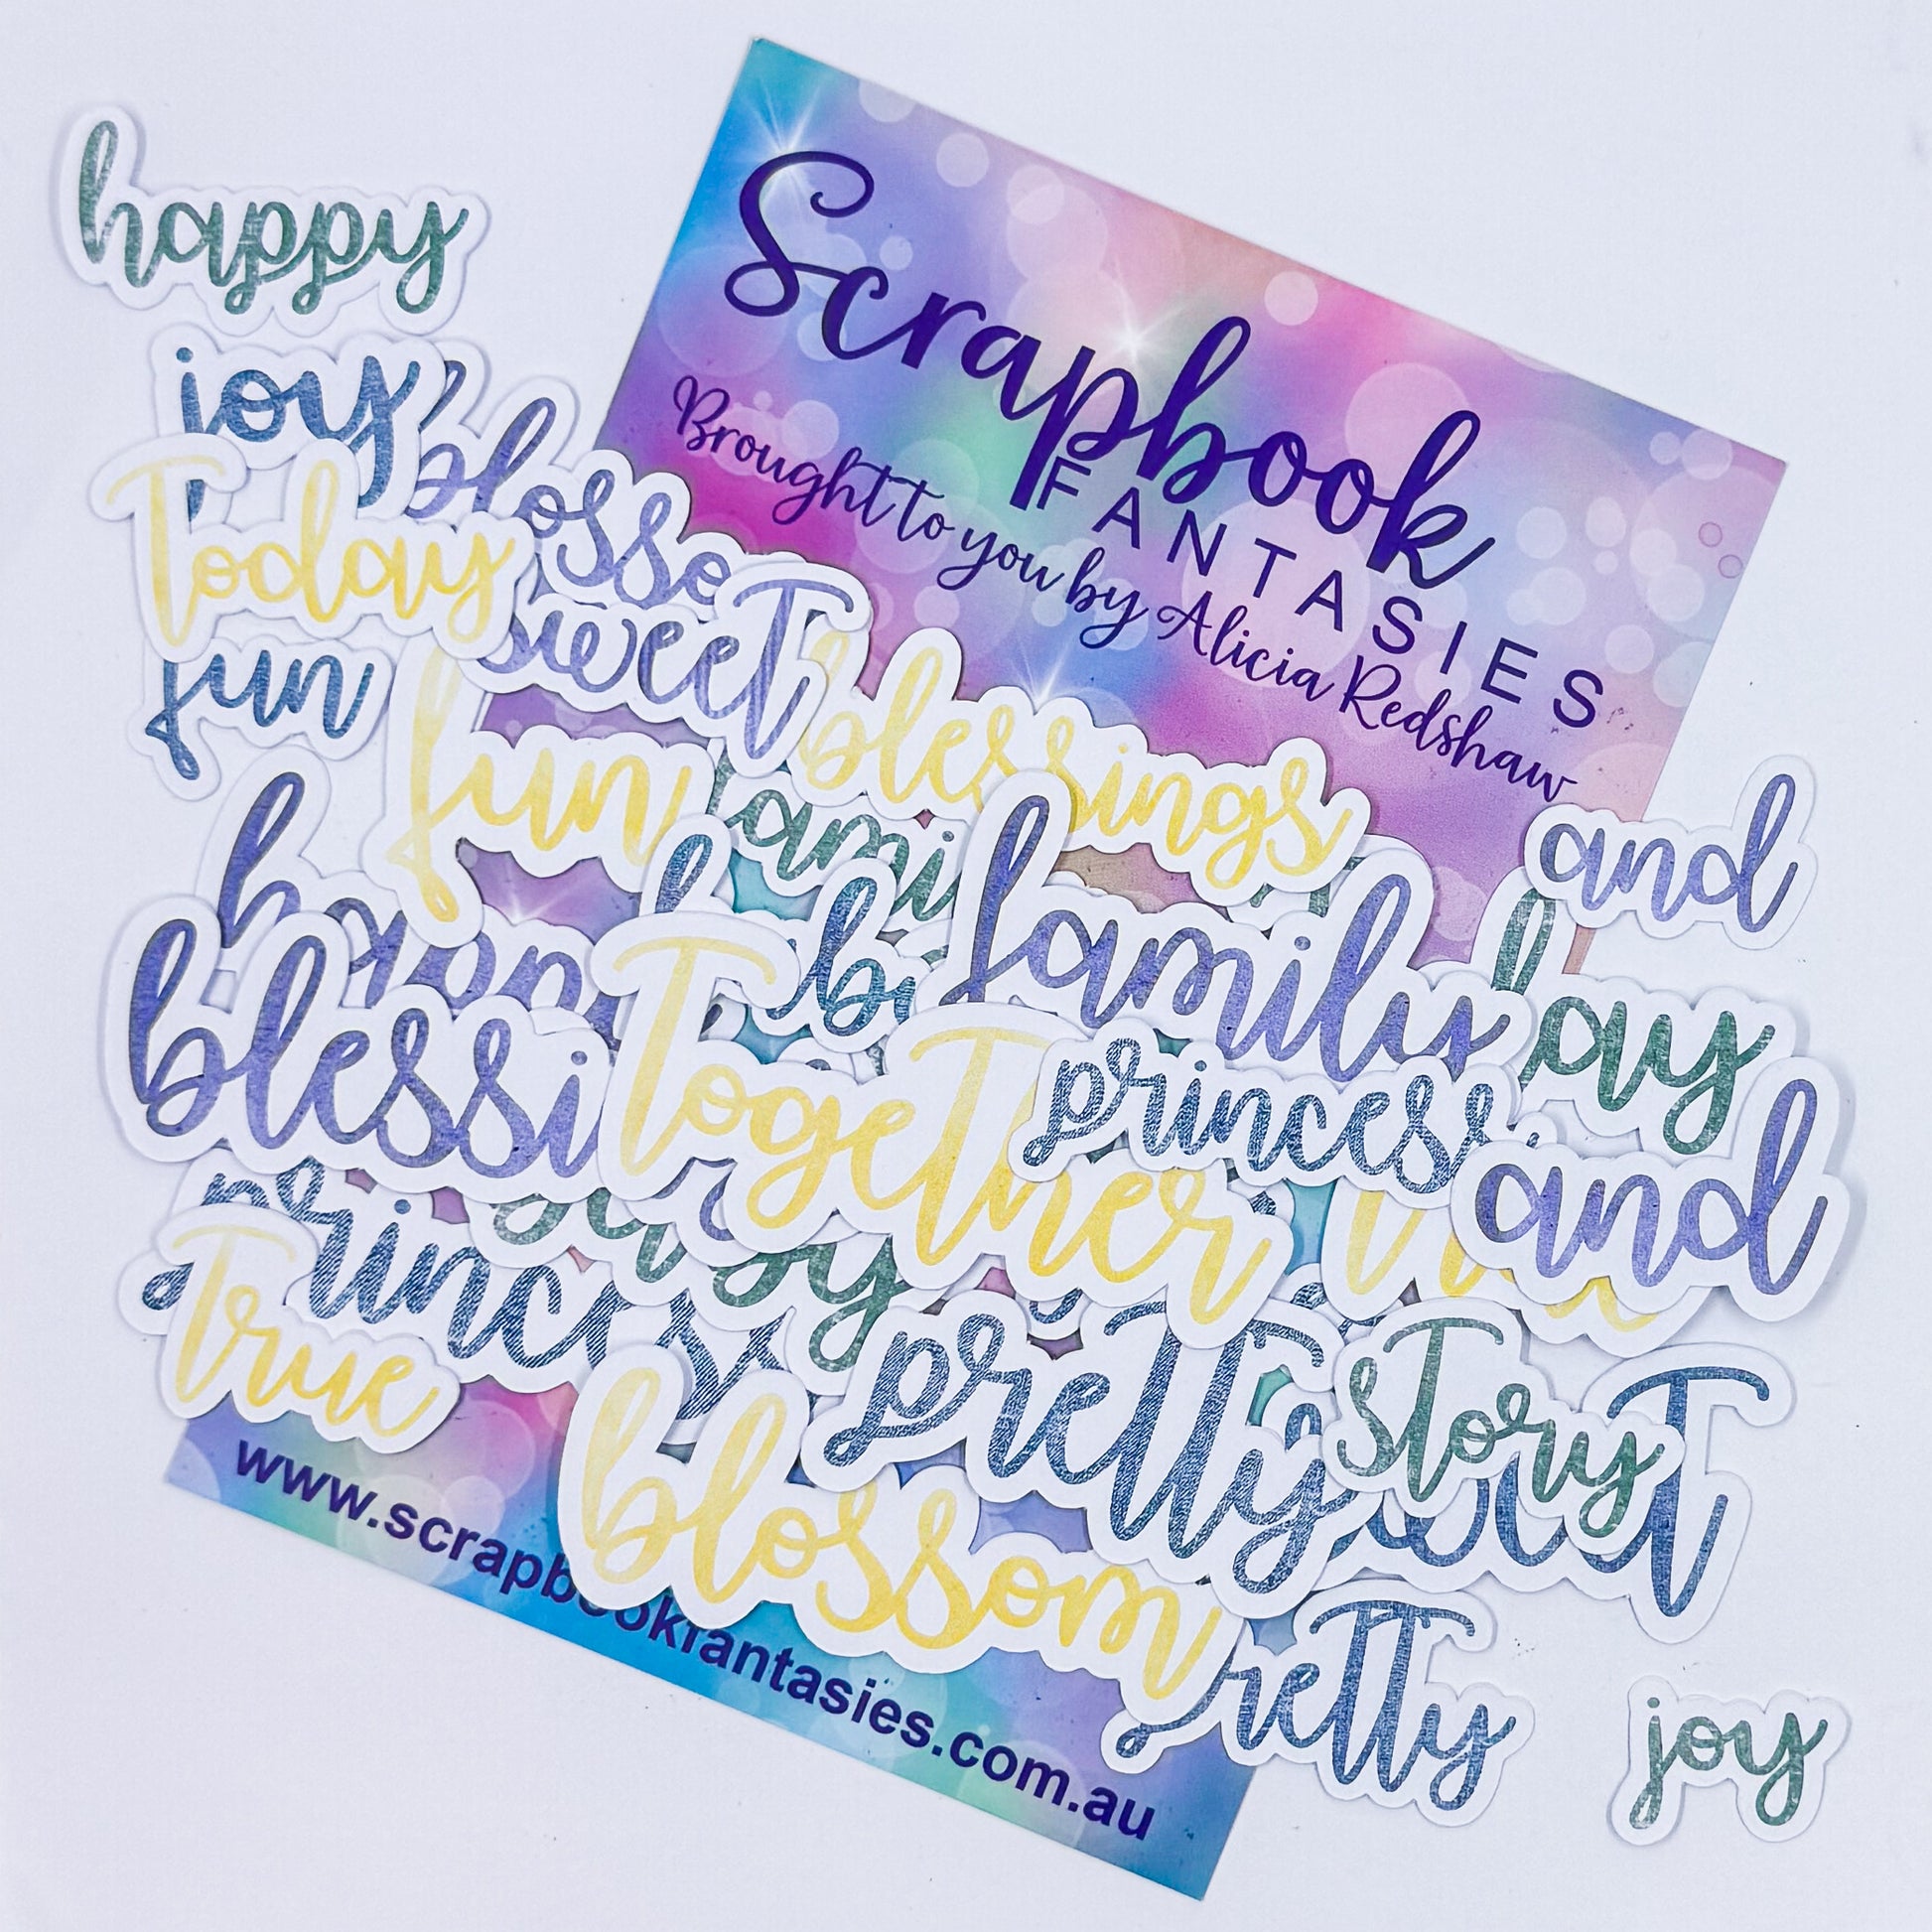 happy
Scrapbook
FANTASIES
Brought to you by Alicia Redshaw
joy
Today
sweet
fun
fun
blessings
and
family
Together
princess
and
princess
True
pretty
story
blossom
pretty
joy
www.scrapbookfantasies.com.au